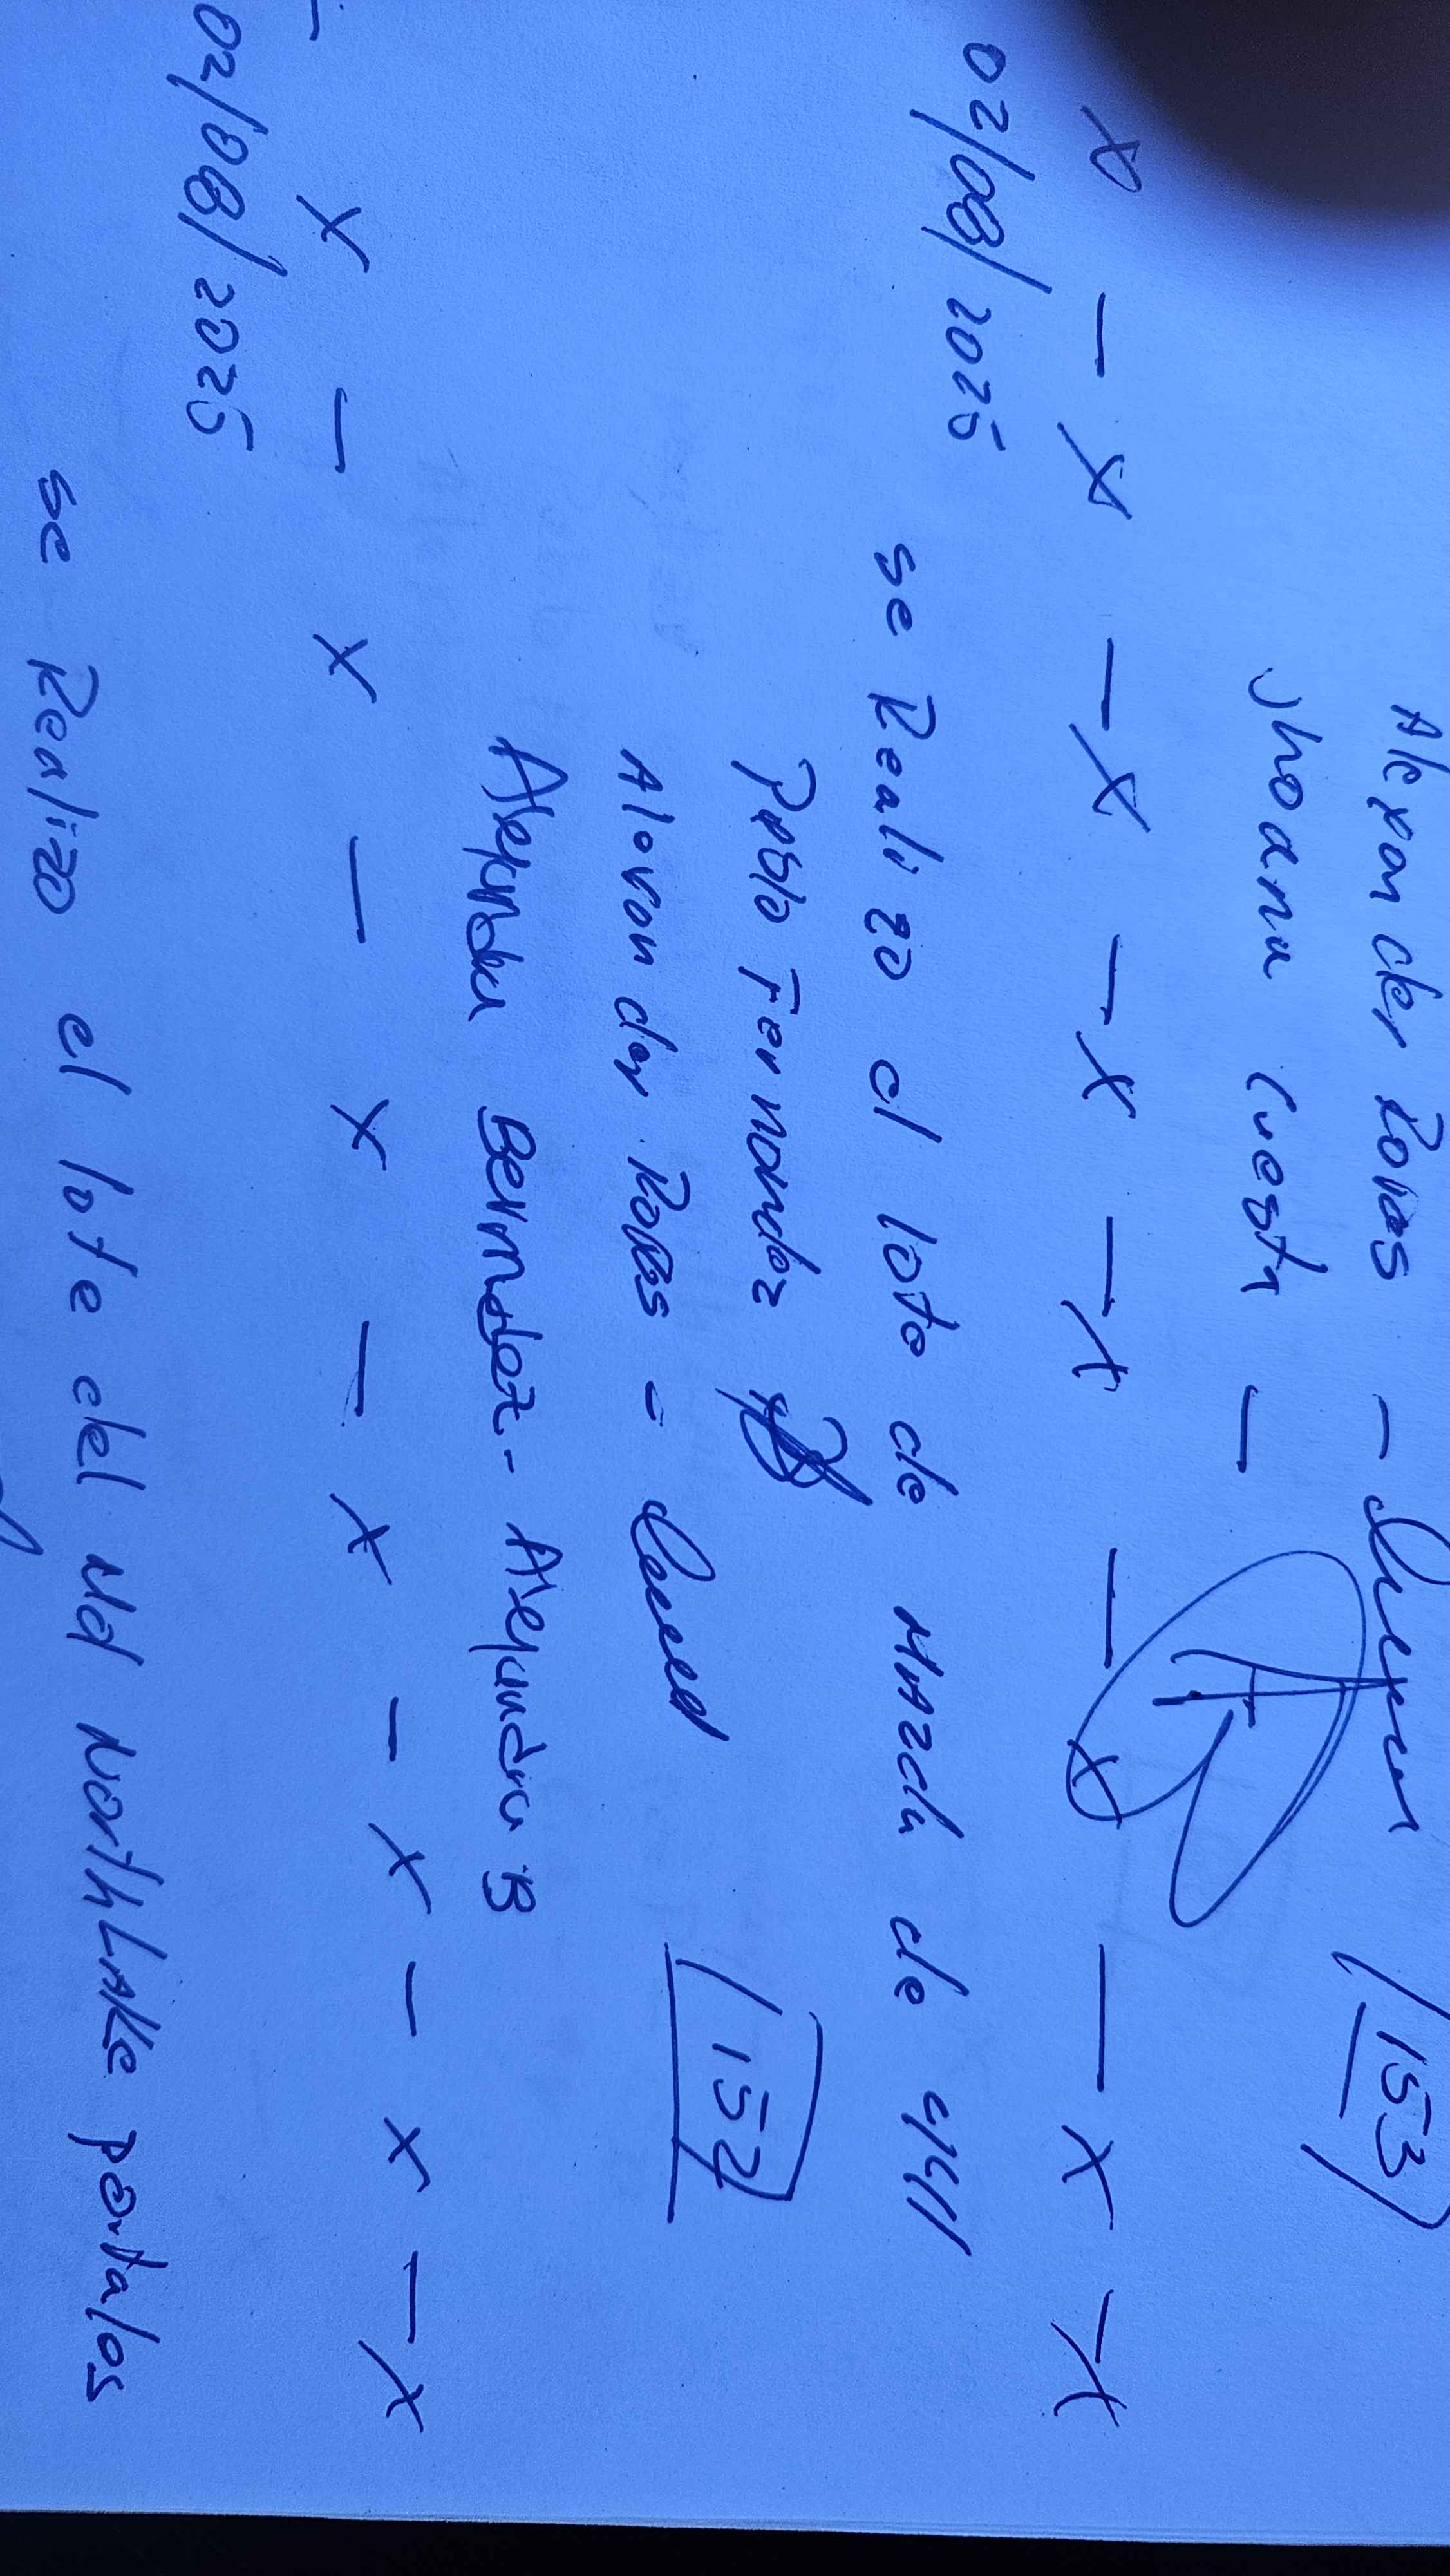 Alexander Rojas - 153
Jhoana Cuesta -
x - x - x - x - x - x - x - x
02/08/2025
se Realizo el lote de MAZda de calle
Pablo Fernandez
Alexander Rojas -
Alejandra Bermudez - Alejandra B
152
x - x - x - x - x - x - x
02/08/2025
se Realizo el lote del Md NorthLAKe portalos